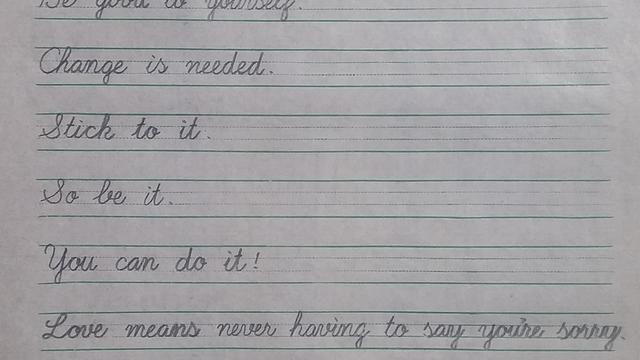 Be good to yourself.
Change is needed.
Stick to it.
So be it.
You can do it!
Love means never having to say you're sorry.